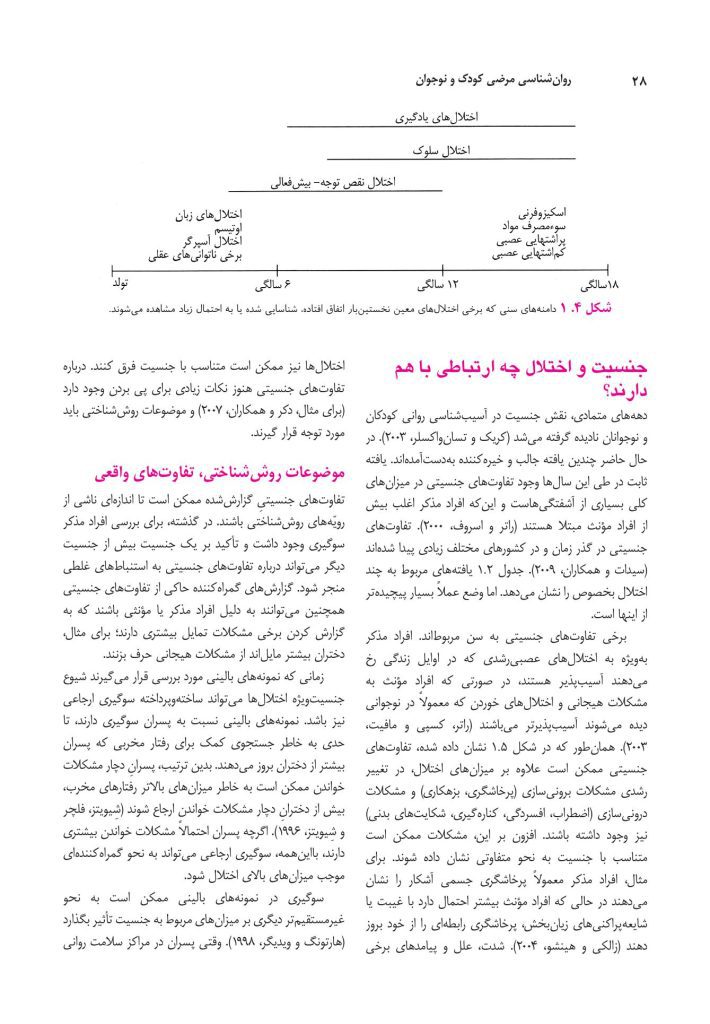 ۲۸
روان‌شناسی مرضی کودک و نوجوان
اختلال‌های یادگیری
اختلال سلوک
اختلال نقص توجه- بیش‌فعالی
اسکیزوفرنی
سوءمصرف مواد
پراشتهایی عصبی
کم‌اشتهایی عصبی
اختلال‌های زبان
اوتیسم
اختلال آسپرگر
برخی ناتوانی‌های عقلی
۱۸سالگی
۱۲ سالگی
۶ سالگی
تولد
شکل ۴. ۱ دامنه‌های سنی که برخی اختلال‌های معین نخستین‌بار اتفاق افتاده، شناسایی شده یا به احتمال زیاد مشاهده می‌شوند.
جنسیت و اختلال چه ارتباطی با هم
دارند؟
دهه‌های متمادی، نقش جنسیت در آسیب‌شناسی روانی کودکان
و نوجوانان نادیده گرفته می‌شد (کریک و تسان‌واکسلر، ۲۰۰۳). در
حال حاضر چندین یافته جالب و خیره‌کننده به‌دست‌آمده‌اند. یافته
ثابت در طی این سال‌ها وجود تفاوت‌های جنسیتی در میزان‌های
کلی بسیاری از آشفتگی‌هاست و این‌که افراد مذکر اغلب بیش
از افراد مؤنث مبتلا هستند (راتر و اسروف، ۲۰۰۰). تفاوت‌های
جنسیتی در گذر زمان و در کشورهای مختلف زیادی پیدا شده‌اند
(سیدات و همکاران، ۲۰۰۹). جدول ۱.۲ یافته‌های مربوط به چند
اختلال بخصوص را نشان می‌دهد. اما وضع عملاً بسیار پیچیده‌تر
از اینها است.
برخی تفاوت‌های جنسیتی به سن مربوط‌اند. افراد مذکر
به‌ویژه به اختلال‌های عصبی‌رشدی که در اوایل زندگی رخ
می‌دهند آسیب‌پذیر هستند، در صورتی که افراد مؤنث به
مشکلات هیجانی و اختلال‌های خوردن که معمولاً در نوجوانی
دیده می‌شوند آسیب‌پذیرتر می‌باشند (راتر، کسپی و مافیت،
۲۰۰۳). همان‌طور که در شکل ۱.۵ نشان داده شده، تفاوت‌های
جنسیتی ممکن است علاوه بر میزان‌های اختلال، در تغییر
رشدی مشکلات برونی‌سازی (پرخاشگری، بزهکاری) و مشکلات
درونی‌سازی (اضطراب، افسردگی، کناره‌گیری، شکایت‌های بدنی)
نیز وجود داشته باشند. افزون بر این، مشکلات ممکن است
متناسب با جنسیت به نحو متفاوتی نشان داده شوند. برای
مثال، افراد مذکر معمولاً پرخاشگری جسمی آشکار را نشان
می‌دهند در حالی که افراد مؤنث بیشتر احتمال دارد با غیبت یا
شایعه‌پراکنی‌های زیان‌بخش، پرخاشگری رابطه‌ای را از خود بروز
دهند (زالکی و هینشو، ۲۰۰۴). شدت، علل و پیامدهای برخی
اختلال‌ها نیز ممکن است متناسب با جنسیت فرق کنند. درباره
تفاوت‌های جنسیتی هنوز نکات زیادی برای پی بردن وجود دارد
(برای مثال، دکر و همکاران، ۲۰۰۷) و موضوعات روش‌شناختی باید
مورد توجه قرار گیرند.
موضوعات روش‌شناختی، تفاوت‌های واقعی
تفاوت‌های جنسیتیِ گزارش‌شده ممکن است تا اندازه‌ای ناشی از
رویّه‌های روش‌شناختی باشند. در گذشته، برای بررسی افراد مذکر
سوگیری وجود داشت و تأکید بر یک جنسیت بیش از جنسیت
دیگر می‌تواند درباره تفاوت‌های جنسیتی به استنباط‌های غلطی
منجر شود. گزارش‌های گمراه‌کننده حاکی از تفاوت‌های جنسیتی
همچنین می‌توانند به دلیل افراد مذکر یا مؤنثی باشند که به
گزارش کردن برخی مشکلات تمایل بیشتری دارند؛ برای مثال،
دختران بیشتر مایل‌اند از مشکلات هیجانی حرف بزنند.
زمانی که نمونه‌های بالینی مورد بررسی قرار می‌گیرند شیوع
جنسیت‌ویژه اختلال‌ها می‌تواند ساخته‌وپرداخته سوگیری ارجاعی
نیز باشد. نمونه‌های بالینی نسبت به پسران سوگیری دارند، تا
حدی به خاطر جستجوی کمک برای رفتار مخربی که پسران
بیشتر از دختران بروز می‌دهند. بدین ترتیب، پسرانِ دچار مشکلات
خواندن ممکن است به خاطر میزان‌های بالاتر رفتارهای مخرب،
بیش از دخترانِ دچار مشکلات خواندن ارجاع شوند (شیویتز، فلچر
و شیویتز، ۱۹۹۶). اگرچه پسران احتمالاً مشکلات خواندن بیشتری
دارند، بااین‌همه، سوگیری ارجاعی می‌تواند به نحو گمراه‌کننده‌ای
موجب میزان‌های بالای اختلال شود.
سوگیری در نمونه‌های بالینی ممکن است به نحو
غیرمستقیم‌تر دیگری بر میزان‌های مربوط به جنسیت تأثیر بگذارد
(هارتونگ و ویدیگر، ۱۹۹۸). وقتی پسران در مراکز سلامت روانی